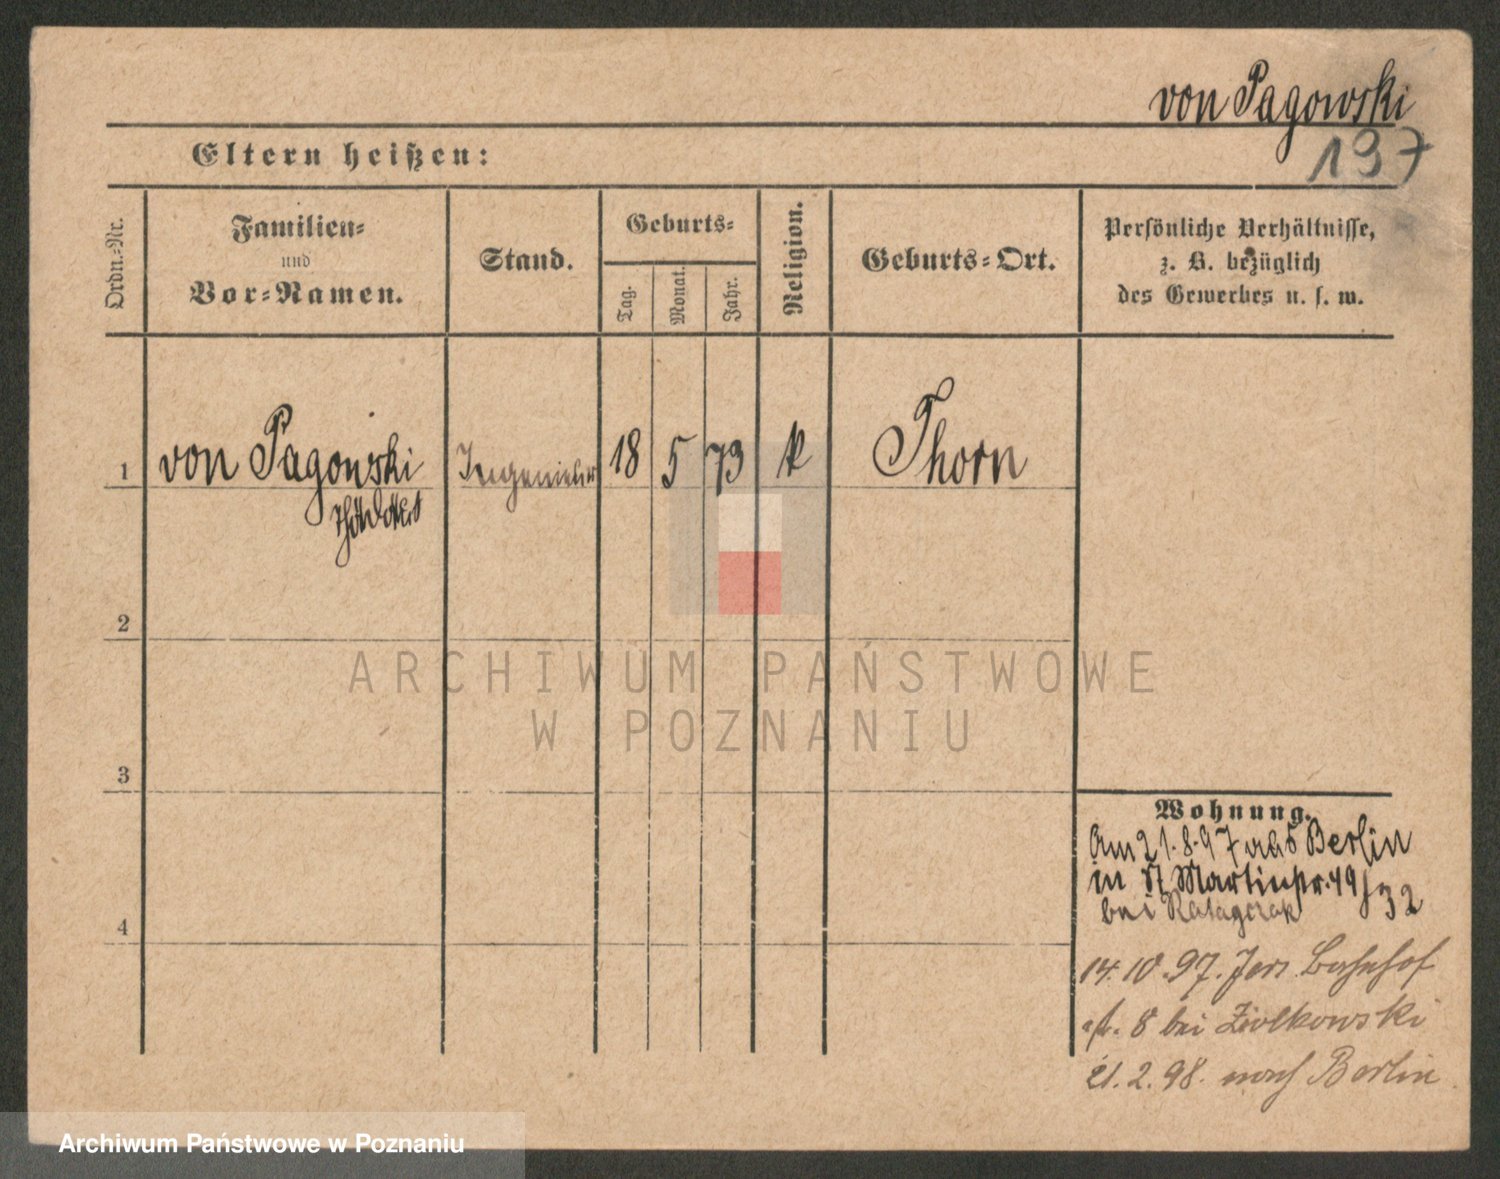 von Pagowski
197
Eltern heißen:
Ordn.-Nr.
Familien-
und
Vor-Namen.
Stand.
Geburts-
Tag.
Monat.
Jahr.
Religion.
Geburts-Ort.
Persönliche Verhältnisse,
z. B. bezüglich
des Gewerbes u. s. w.
1 von Pagowski Ingenieur 18 5 73 k Thorn
2
3
4
Wohnung.
Am 21.8.97 aus Berlin
in St Martinstr. 49 32
bei Ratajczak
14.10.97. Bahnhof
8 bei Ziolkowski
21.2.98. nach Berlin
ARCHIWUM PAŃSTWOWE
W POZNANIU
Archiwum Państwowe w Poznaniu